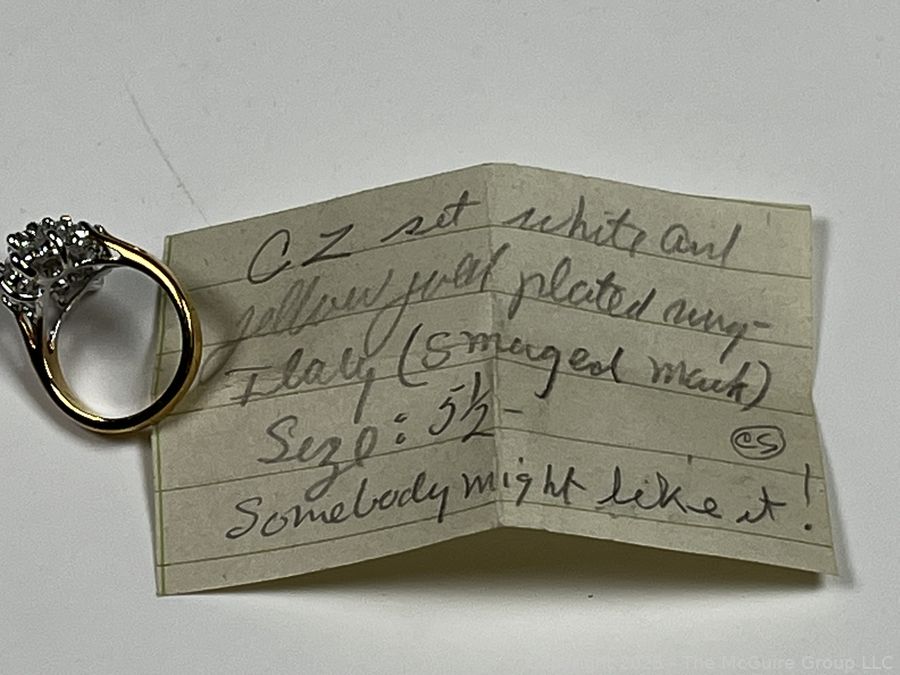 CZ set white and
yellow gold plated ring -
Italy (smuged mark)
Size: 5 1/2 -
CS
Somebody might like it!
The McGuire Group LLC